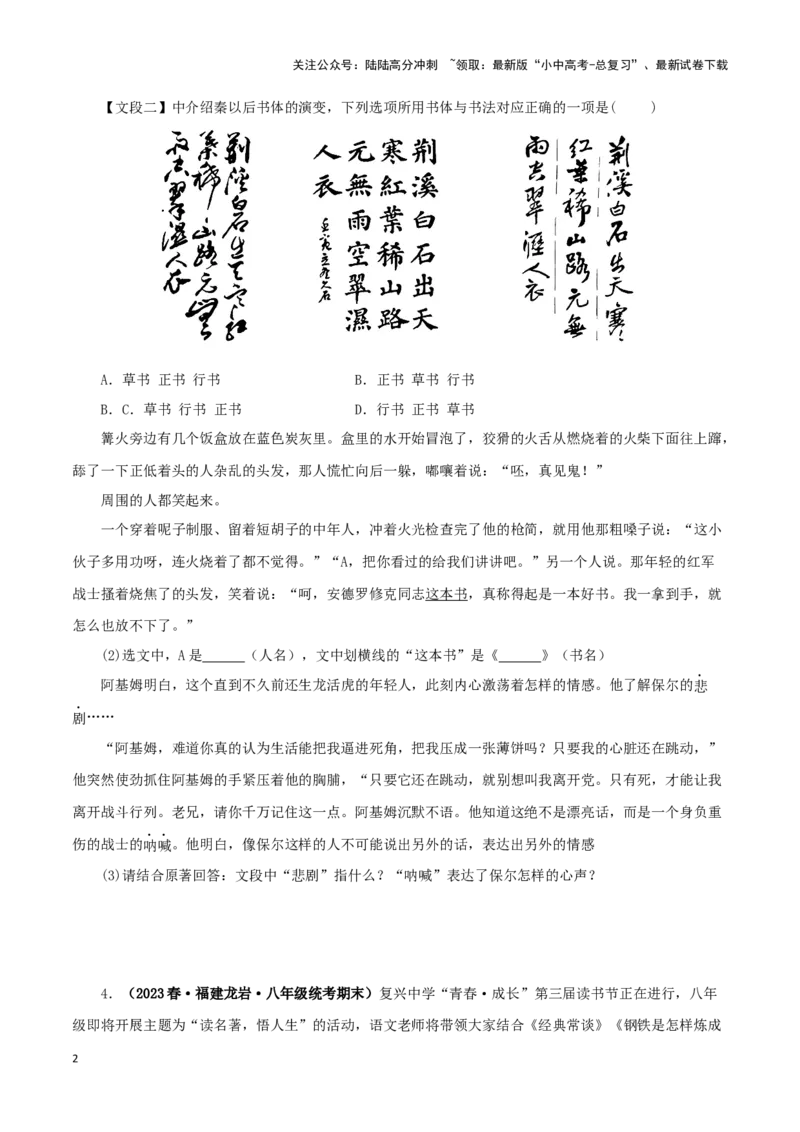 关注公众号：陆陆高分冲刺 ~领取：最新版“小中高考-总复习”、最新试卷下载
【文段二】中介绍秦以后书体的演变，下列选项所用书体与书法对应正确的一项是(    )
荆溪白石出天寒红
葉稀山路元無
雨空翠濕人衣
荆溪白石出天
寒紅葉稀山路
元無雨空翠濕
人衣
荆溪白石出天寒
红葉稀山路元無
雨空翠濕人衣
A．草书 正书 行书 B．正书 草书 行书
B．C．草书 行书 正书 D．行书 正书 草书
篝火旁边有几个饭盒放在蓝色炭灰里。盒里的水开始冒泡了，狡猾的火舌从燃烧着的火柴下面往上蹿，
舔了一下正低着头的人杂乱的头发，那人慌忙向后一躲，嘟囔着说：“呸，真见鬼！”
周围的人都笑起来。
一个穿着呢子制服、留着短胡子的中年人，冲着火光检查完了他的枪筒，就用他那粗嗓子说：“这小
伙子多用功呀，连火烧着了都不觉得。”“A，把你看过的给我们讲讲吧。”另一个人说。那年轻的红军
战士搔着烧焦了的头发，笑着说：“呵，安德罗修克同志这本书，真称得起是一本好书。我一拿到手，就
怎么也放不下了。”
(2)选文中，A是______（人名），文中划横线的“这本书”是《______》（书名）
阿基姆明白，这个直到不久前还生龙活虎的年轻人，此刻内心激荡着怎样的情感。他了解保尔的悲
剧……
“阿基姆，难道你真的认为生活能把我逼进死角，把我压成一张薄饼吗？只要我的心脏还在跳动，”
他突然使劲抓住阿基姆的手紧压着他的胸脯，“只要它还在跳动，就别想叫我离开党。只有死，才能让我
离开战斗行列。老兄，请你千万记住这一点。阿基姆沉默不语。他知道这绝不是漂亮话，而是一个身负重
伤的战士的呐喊。他明白，像保尔这样的人不可能说出另外的话，表达出另外的情感
(3)请结合原著回答：文段中“悲剧”指什么？“呐喊”表达了保尔怎样的心声？
4．（2023春·福建龙岩·八年级统考期末）复兴中学“青春·成长”第三届读书节正在进行，八年
级即将开展主题为“读名著，悟人生”的活动，语文老师将带领大家结合《经典常谈》《钢铁是怎样炼成
2